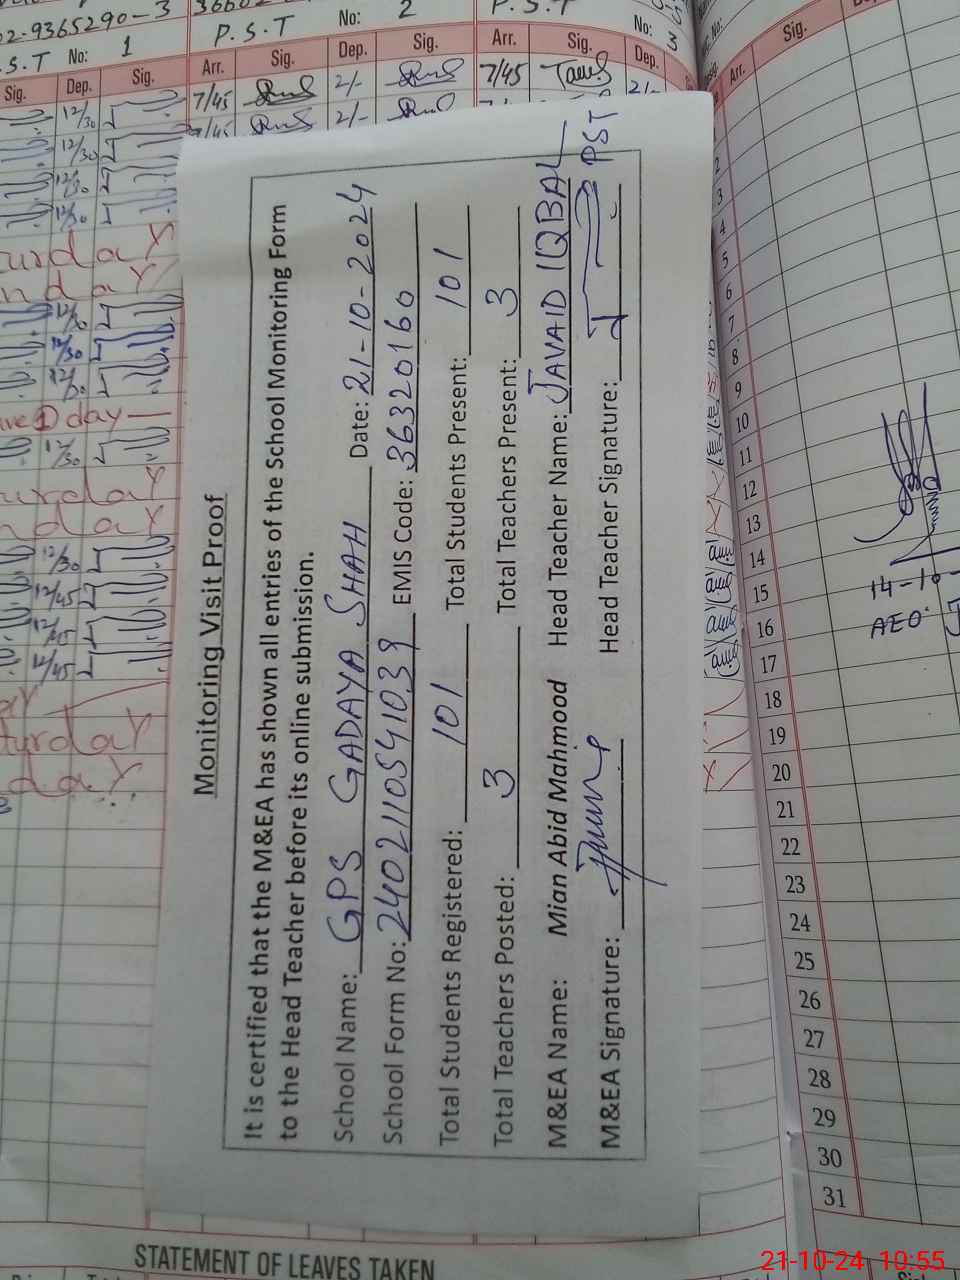 Monitoring Visit Proof
It is certified that the M&EA has shown all entries of the School Monitoring Form
to the Head Teacher before its online submission.
School Name: GPS GADAYA SHAH Date: 21-10-2024
School Form No: 2402110541039 EMIS Code: 36320160
Total Students Registered: 101 Total Students Present: 101
Total Teachers Posted: 3 Total Teachers Present: 3
M&EA Name: Mian Abid Mahmood Head Teacher Name: JAVAID IQBAL
M&EA Signature: Head Teacher Signature: PST
02-9365290-3
P.S.T No: 2
S.T No: 1
P.S.T
No: 3
Sig. Dep. Sig. Arr. Sig. Dep. Sig. Arr. Sig. Dep.
12/30 7/45 2/- 7/45 2/-
12/30 7/45 2/-
12/30
12/30
urday
nday
12/30
12/30
12/30
ave 1 day
12/30
urday
nday
12/30
12/45
12/45
12/45
turday
day
Arr. Sig.
2
3
4
5
6
7
8
9
10
11
12
13
14
15
16
17
18
19
20
21
22
23
24
25
26
27
28
29
30
31
14-10-
AEO
STATEMENT OF LEAVES TAKEN
21-10-24 10:55